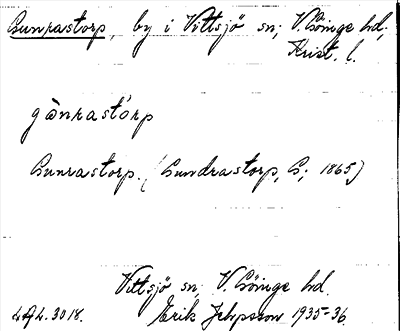 Gunrastorp, by i Vittsjö sn; V. Göinge hd,
Krist. l.
gànrastɔrp
Gunrastorp. (Gundrastorp, G; 1865)
Vittsjö sn, V. Göinge hd.
Erik Jeppsson 1935-36.